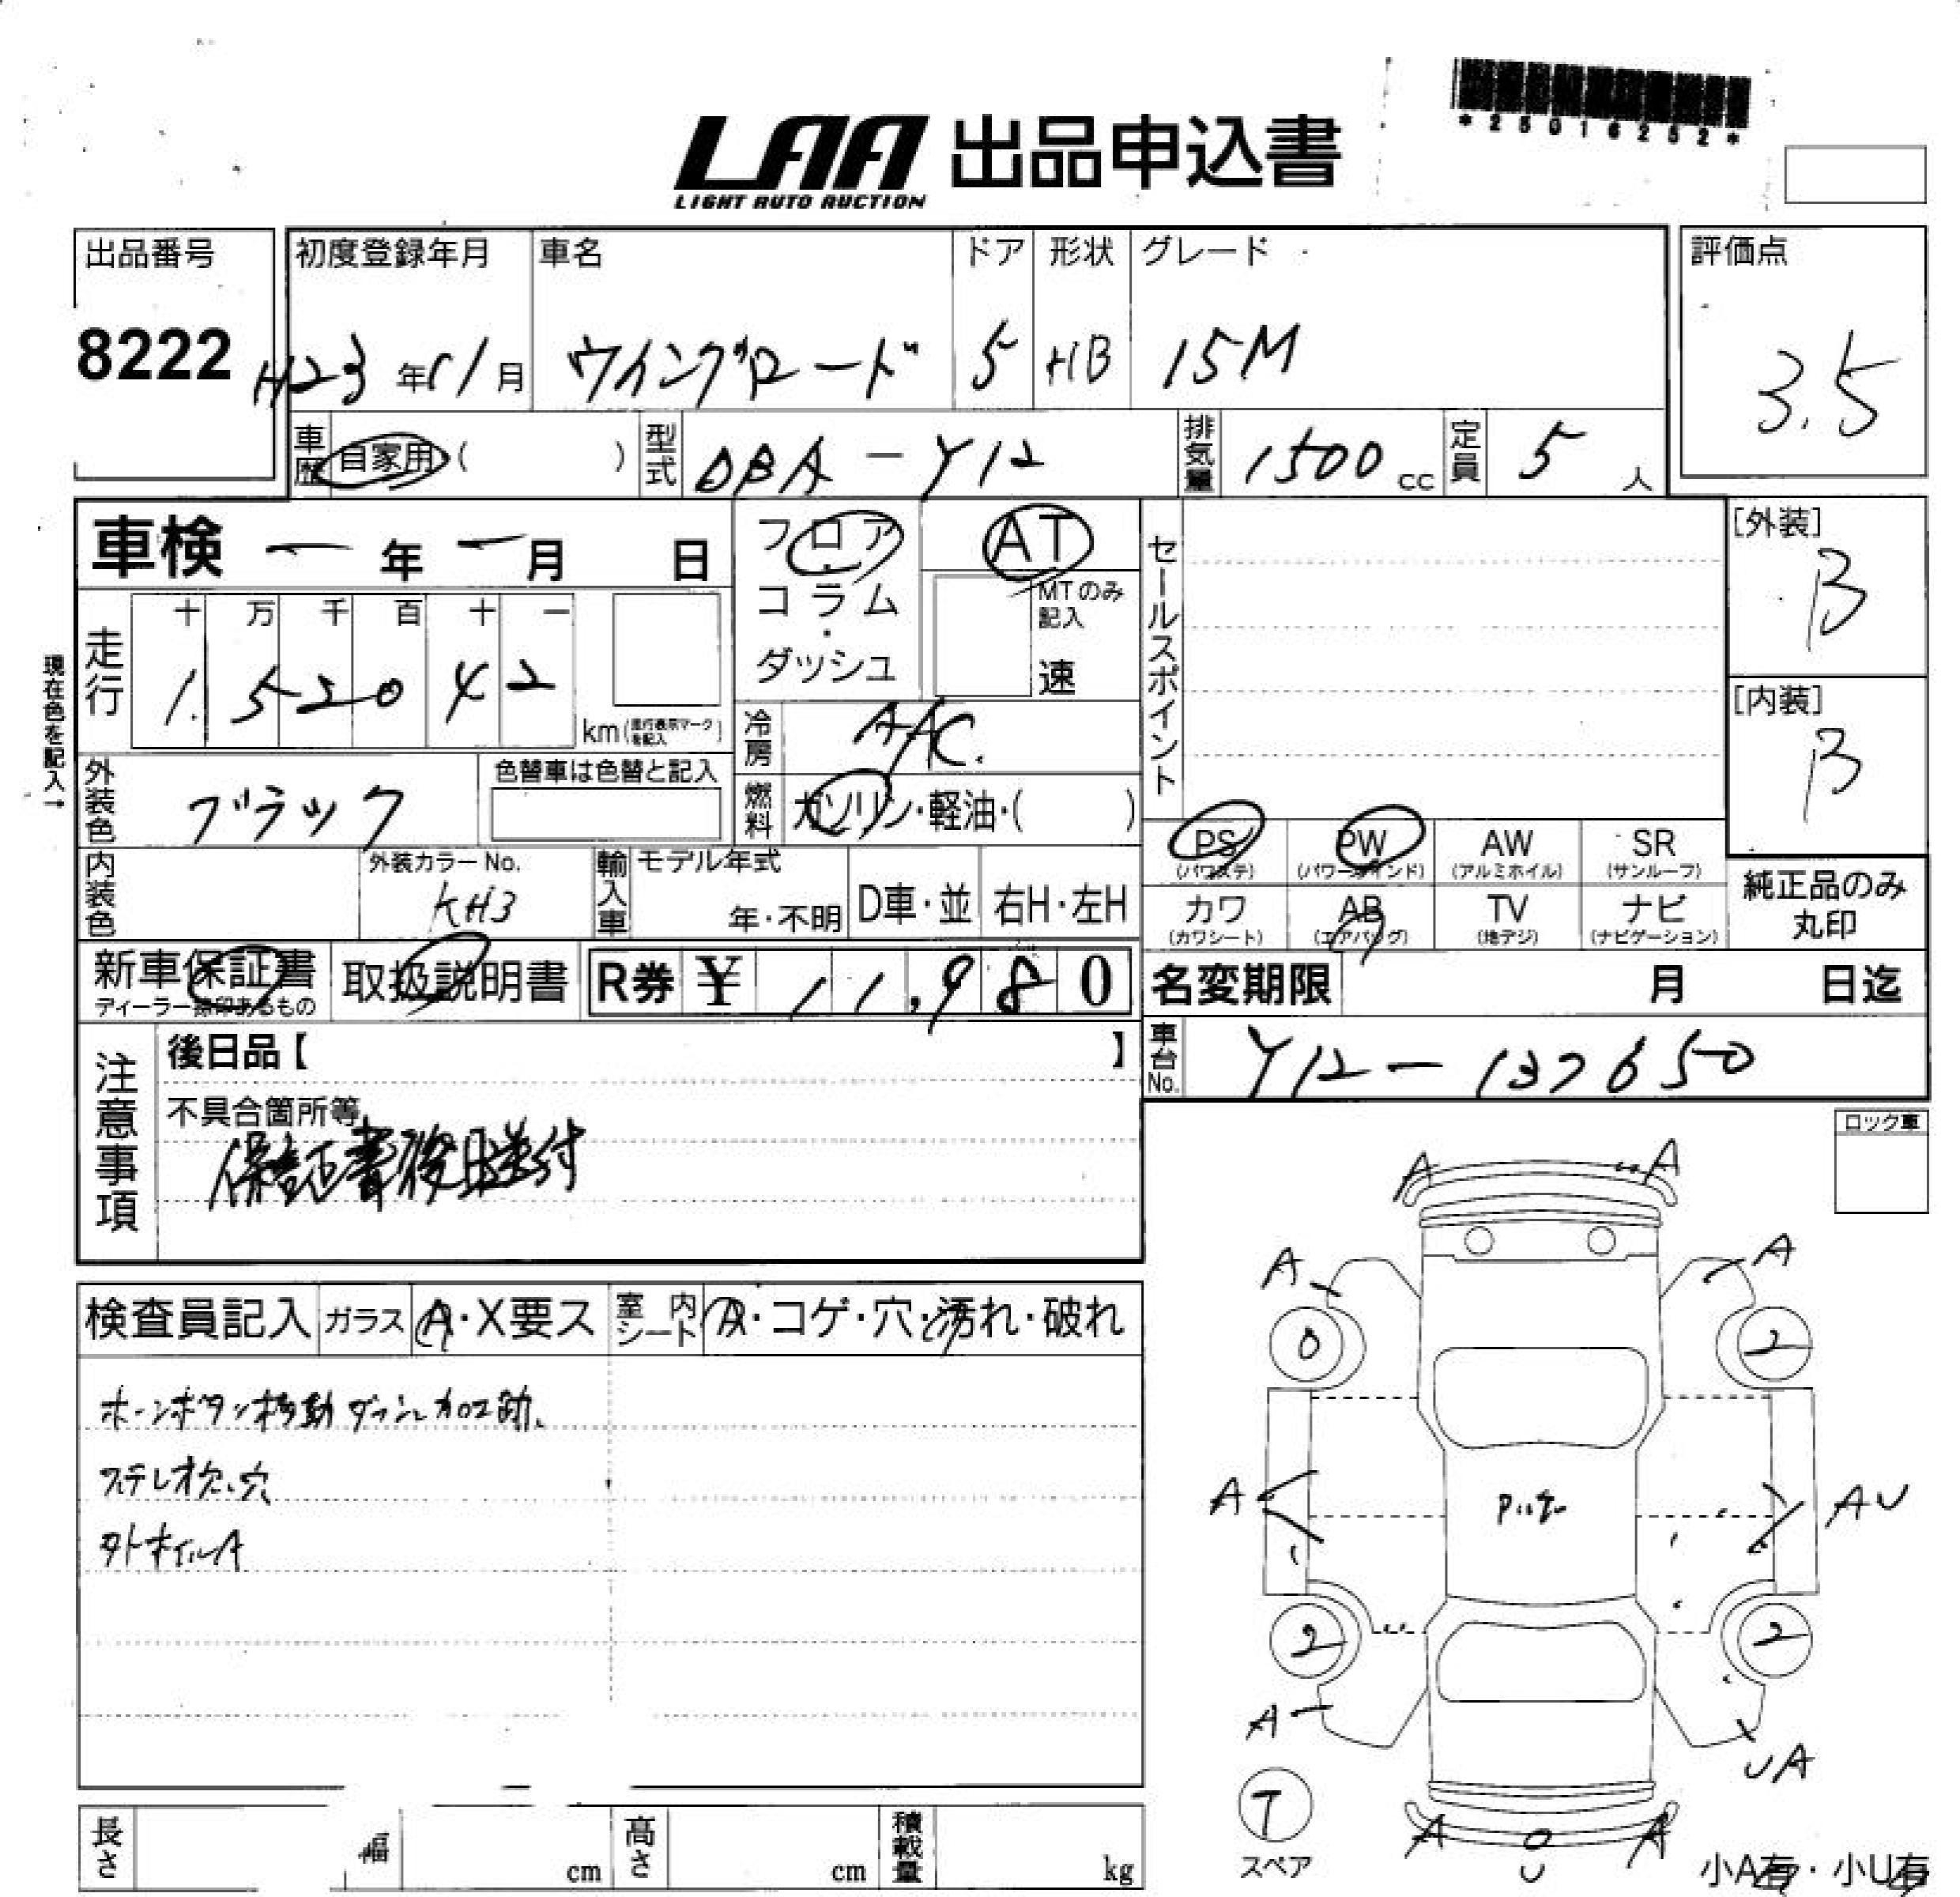 *25016252*
LAA 出品申込書
LIGHT AUTO AUCTION
出品番号
8222
初度登録年月
H23 年 月
車名
ウイングロード
ドア
5
形状
HB
グレード
15M
評価点
3.5
車歴 自家用 ( )
型式 DBA-Y12
排気量 1500 cc
定員 5 人
車検 - 年 - 月 日
フロア・コラム・ダッシュ
AT
MTのみ記入
速
セールスポイント
[外装]
B
[内装]
B
現在色を記入→
走行
十 万 千 百 十 一
1 5 2 0 4 2
km(走行表示マークを記入)
冷房 A/C.
燃料 ガソリン・軽油・( )
外装色 ブラック
色替車は色替と記入
内装色
外装カラーNo.
KH3
輸入車
モデル年式
年・不明
D車・並
右H・左H
PS (パワステ)
PW (パワーウインド)
AW (アルミホイル)
SR (サンルーフ)
カワ (カワシート)
AB (エアバッグ)
TV (地デジ)
ナビ (ナビゲーション)
純正品のみ丸印
新車保証書
ディーラー捺印あるもの
取扱説明書
R券 ¥ 11,980
名変期限 月 日迄
車台No. Y12-137650
注意事項
後日品【 】
不具合箇所等
保証書後日送付
ロック車
検査員記入
ガラス A・X要ス
室内シート A・コゲ・穴・汚れ・破れ
ホーンボタン移動 ダッシュ加工跡、
ステレオ欠、穴
タトホイルA
A A
A A
0 2
A AU
2 2
A UA
T
スペア
A U A
小A有・小U有
長さ
幅 cm
高さ cm
積載量 kg